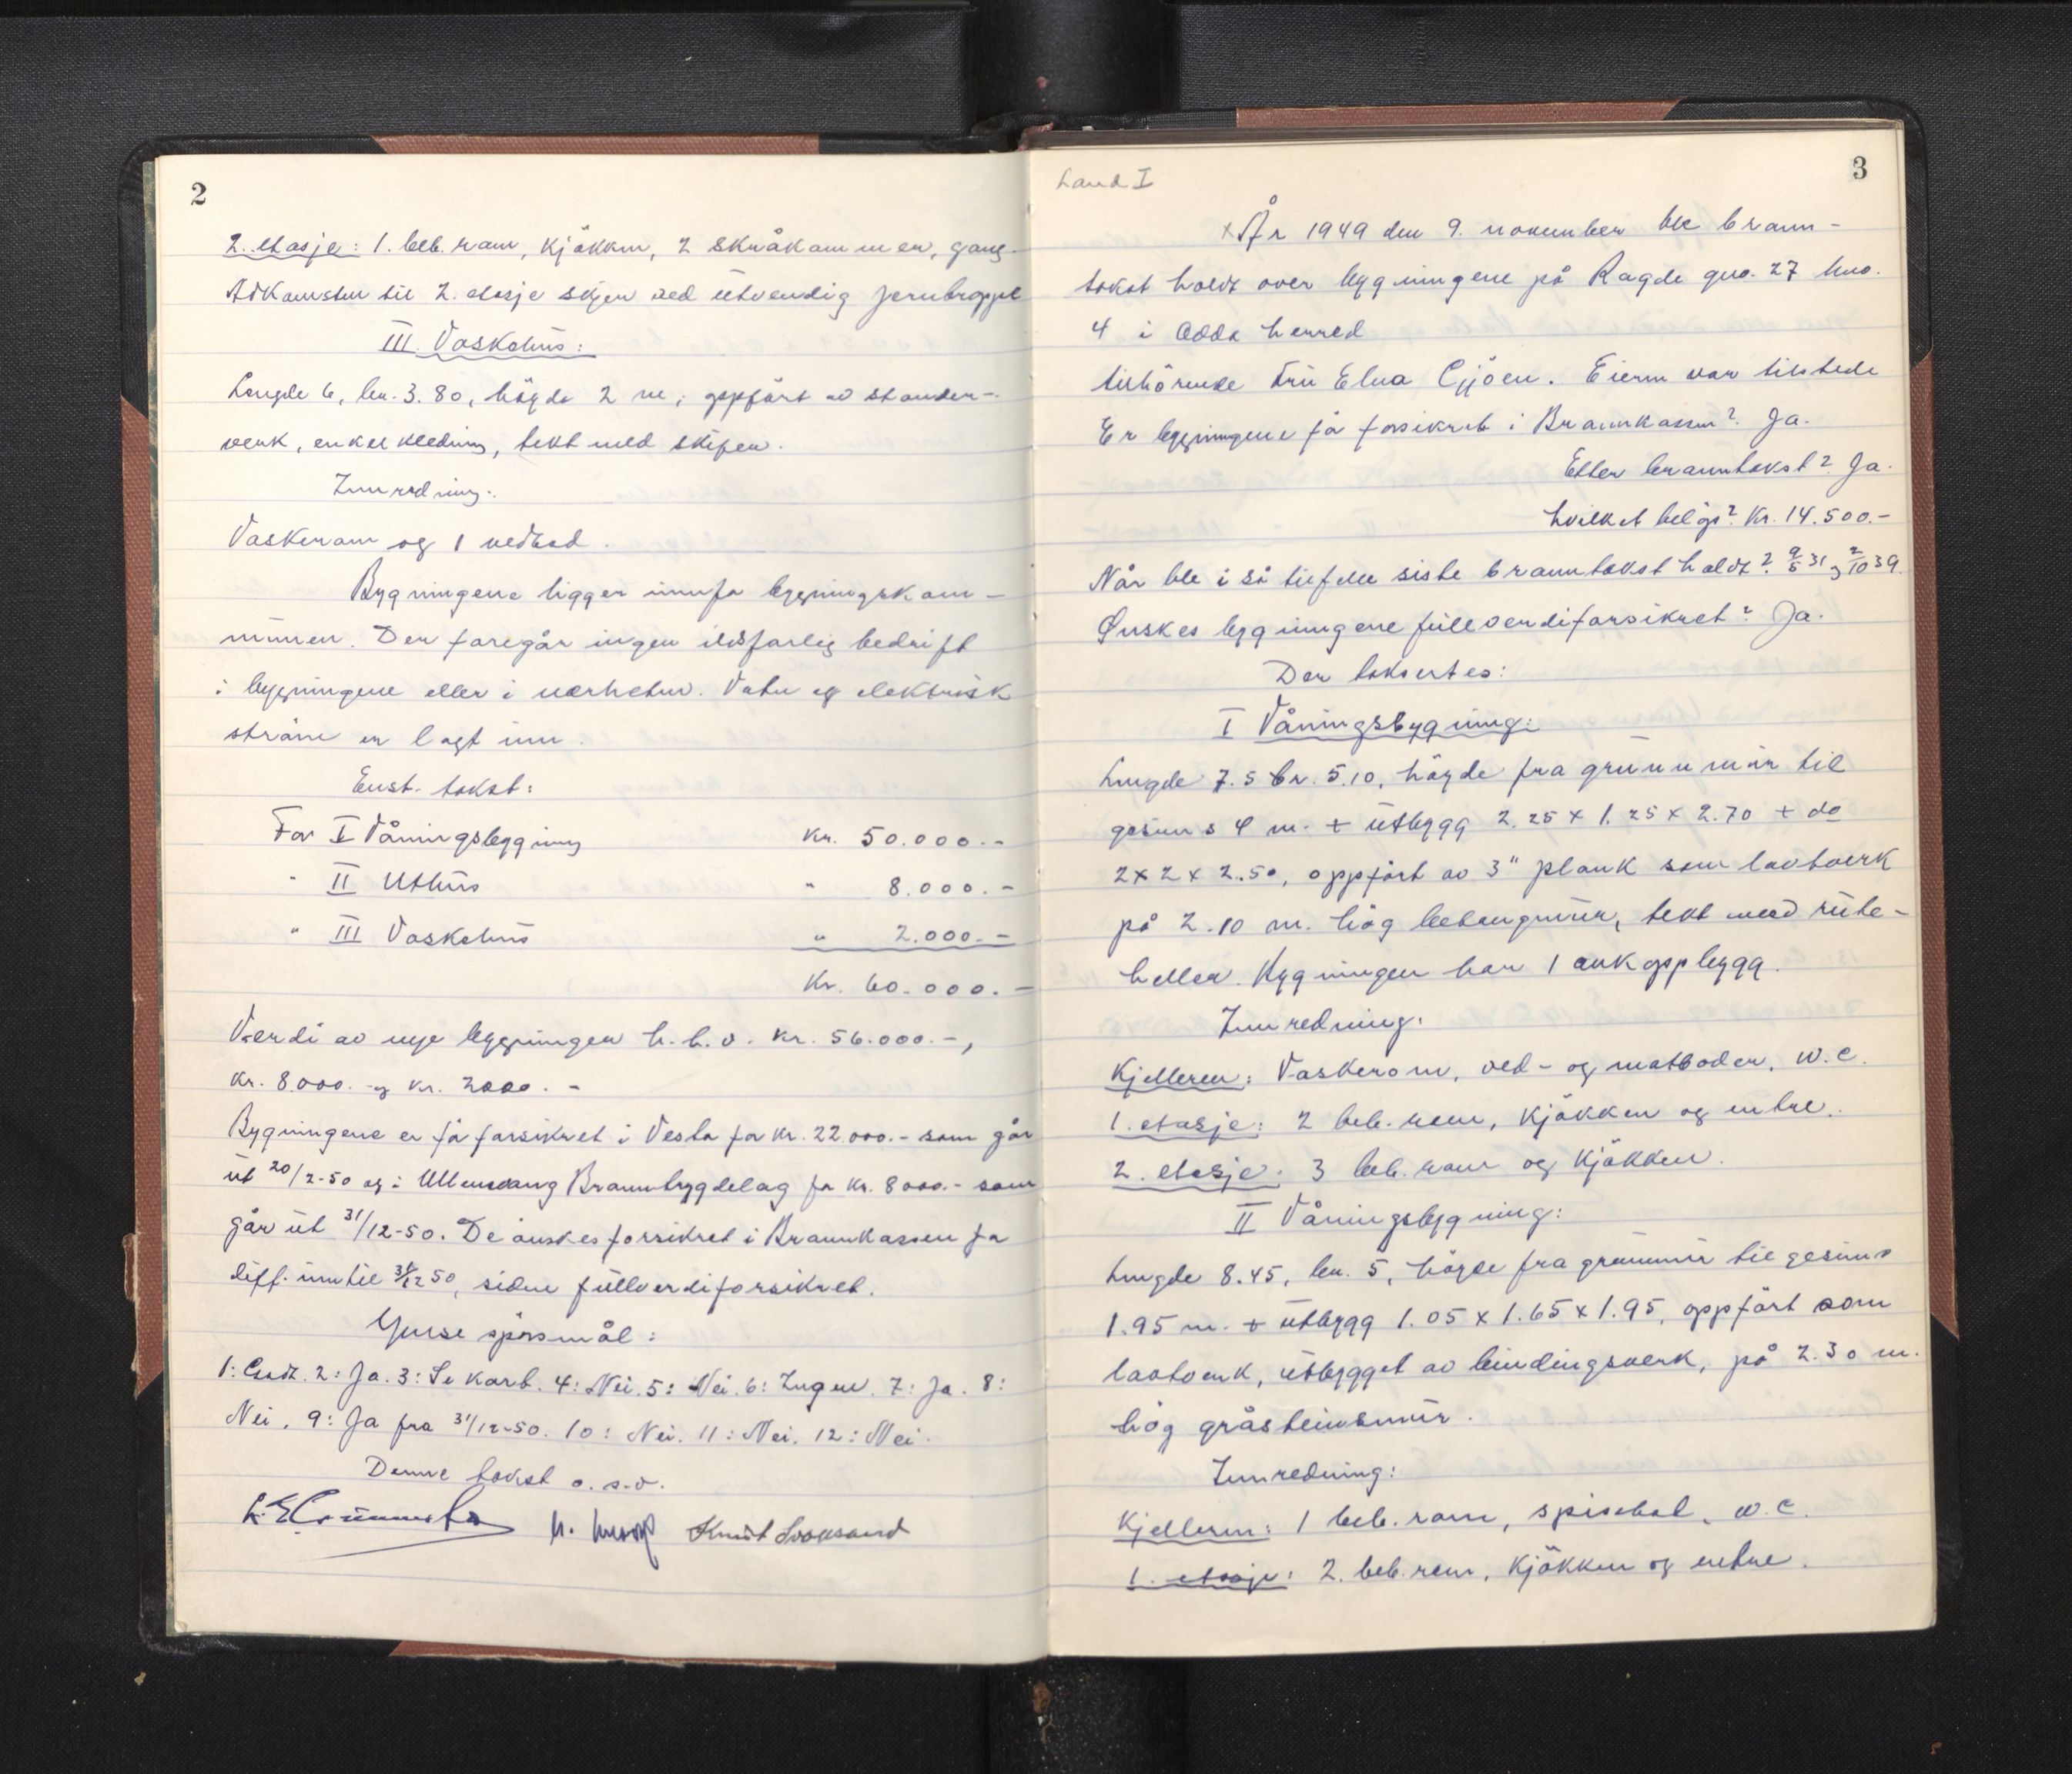 2
2. etasje: 1. beb. rom, kjökken, 2 skråkammer, gang.
Adkomsten til 2. etasje skjer ved utvendig jernbroppl
III. Vaskehus:
Lengde 6, br. 3.80, högde 2 m, oppfört av stander-
verk, enkel kledning, tekt med skifer.
Innredning:
Vaskerom og 1 vedbod.
Bygningene ligger innafor bygningskom-
munen. Der foregår ingen ildsfarlig bedrift
i bygningene eller i nærheten. Vatn og elektrisk
ström er lagt inn.
Enst. takst:
For I Våningsbygning kr. 50.000.-
" II Uthus " 8.000.-
" III Vaskehus " 2.000.-
Kr. 60.000.-
Verdi av nye bygningen h.h.v. kr. 56.000.-,
kr. 8.000.- og kr. 2000.-
Bygningene er få forsikret i Vesta for kr. 22.000.- som går
ut 20/2-50 og i Ullensvang Brannbygdelag for kr. 8000.- som
går ut 31/12-50. De önskes forsikret i Brannkassen for
diff. inntil 31/12 50, siden fullverdiforsikret.
Ymse spörsmål:
1: Godt. 2: Ja. 3: Se kart. 4: Nei. 5: Nei. 6: Ingen. 7: Ja. 8:
Nei. 9: Ja fra 31/12-50. 10: Nei. 11: Nei. 12: Nei.
Denne takst o.s.v.
Knut
3
Land I
x År 1949 den 9. november ble brann-
takst holdt over bygningene på Ragde gno. 27 bno.
4 i Odda herred
tilhörende Fru Elna Gjöen. Eieren var tilstede
Er bygningene för forsikret i Brannkassen? Ja.
Etter branntakst? Ja.
hvilket belöp? Kr. 14.500.-
Når ble i så tilfelle siste branntakst holdt? 9/5 31 og 2/10 39.
Önskes bygningene fullverdiforsikret? Ja.
Der takstertes:
I Våningsbygning:
Lengde 7.5 br. 5.10, högde fra grunnmur til
gesims 4 m. + utbygg 2.25 x 1.25 x 2.70 + do
2 x 2 x 2.50, oppfört av 3" plank som lavtverk
på 2.10 m. hög betongmur, tekt med rute-
heller. Bygningen har 1 arkoppbygg.
Innredning:
Kjelleren: Vaskerom, ved- og matboder, w.c.
1. etasje: 2 beb. rom, kjökken og entre.
2. etasje: 3 beb. rom og kjökken.
II Våningsbygning:
Lengde 8.45, br. 5, högde fra grunnmur til gesims
1.95 m. + utbygg 1.05 x 1.65 x 1.95, oppfört som
lavtverk, utbygget av bindingsverk, på 2.30 m.
hög gråsteinsmur.
Innredning:
Kjelleren: 1 beb. rom, spisebod, w.c.
1. etasje: 2. beb. rom, kjökken og entre.